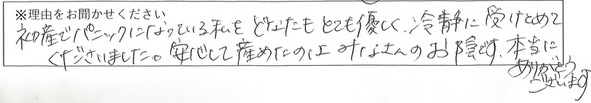 ※理由をお聞かせください
初産でパニックになっている私を どなたも とても優しく、冷静に 受けとめて
くださいました。安心して産めたのは みなさんのお陰です。本当に
ありがとう
ございます